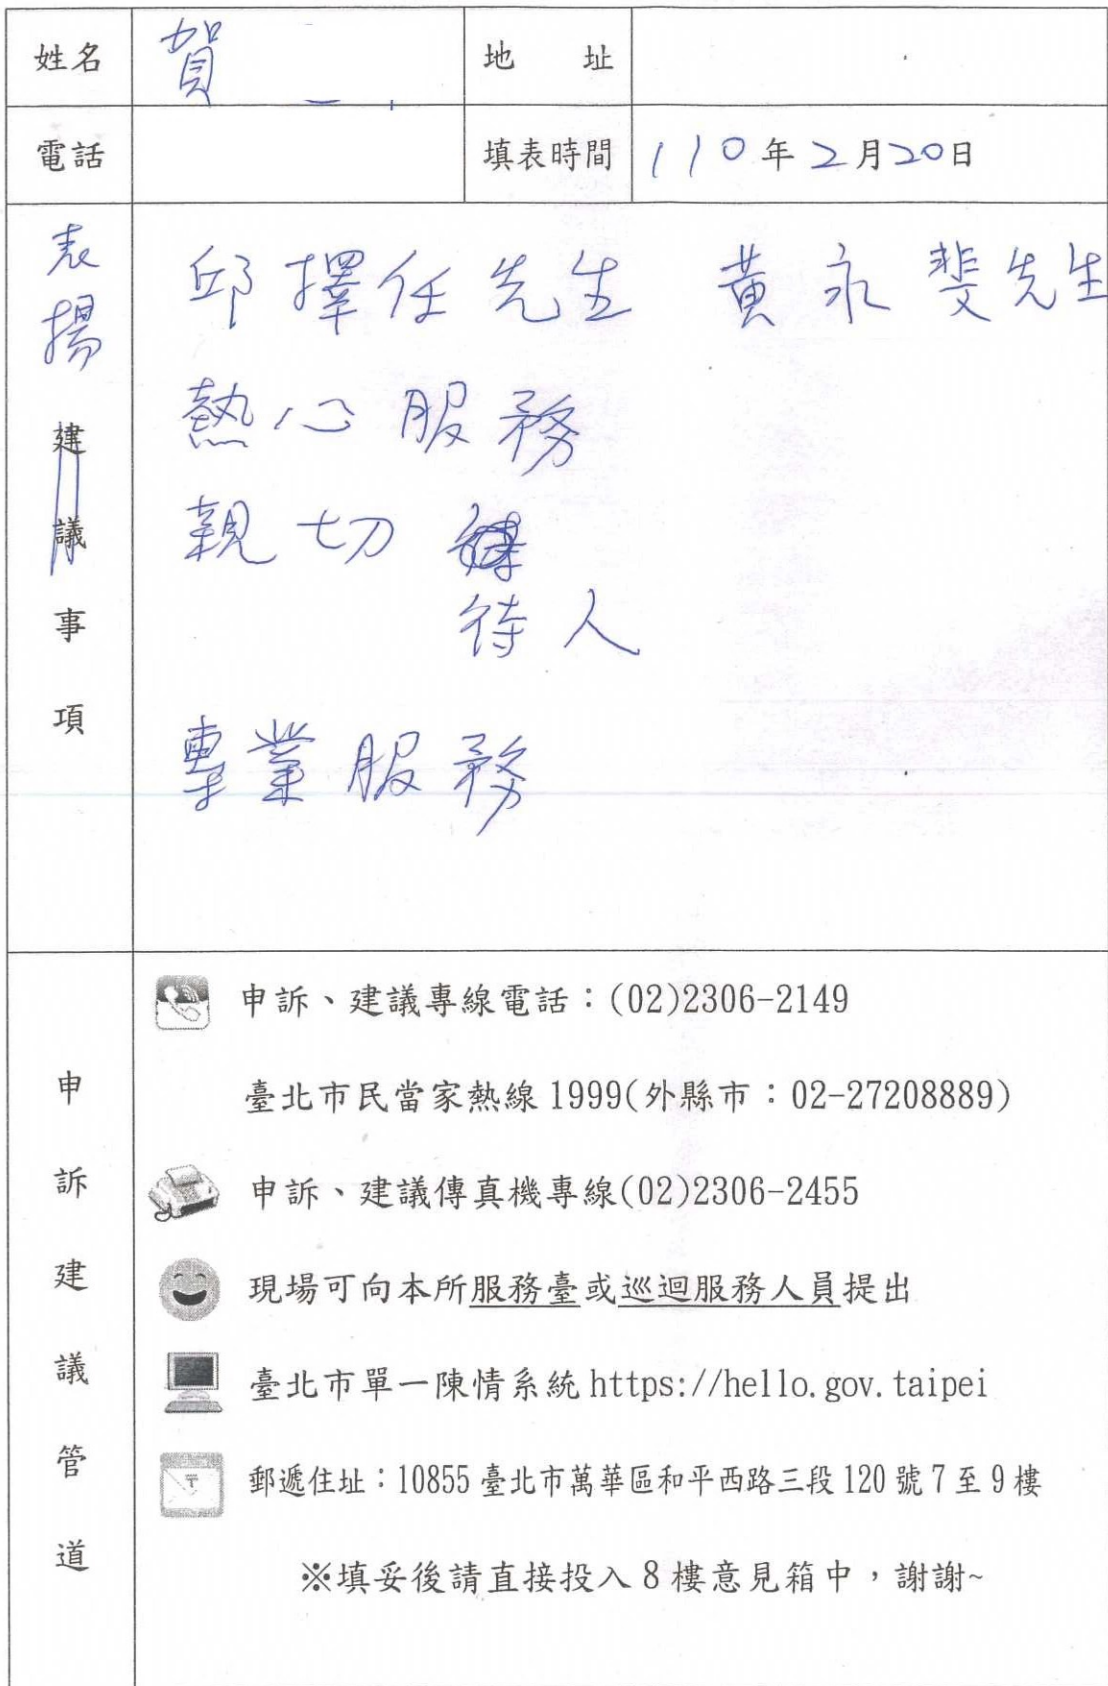 姓名 賀 地 址
電話 填表時間 110年2月20日
表揚
建議事項
邱擇任先生 黃永斐先生
熱心服務
親切
待人
專業服務
申訴建議管道
申訴、建議專線電話：(02)2306-2149
臺北市民當家熱線1999(外縣市：02-27208889)
申訴、建議傳真機專線(02)2306-2455
現場可向本所服務臺或巡迴服務人員提出
臺北市單一陳情系統https://hello.gov.taipei
郵遞住址：10855臺北市萬華區和平西路三段120號7至9樓
※填妥後請直接投入8樓意見箱中，謝謝~